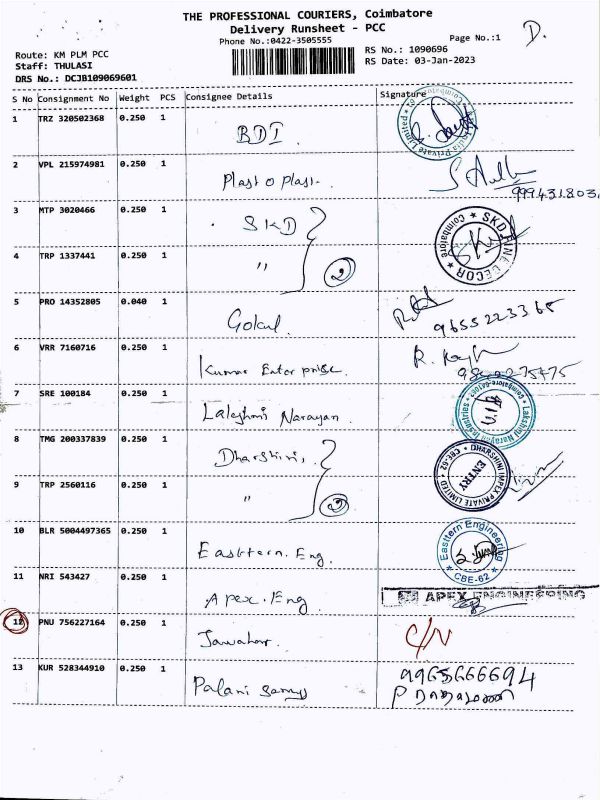 THE PROFESSIONAL COURIERS, Coimbatore
Delivery Runsheet - PCC
Phone No.:0422-3505555
Page No.:1
D.
Route: KM PLM PCC
Staff: THULASI
DRS No.: DCJB109069601
RS No.: 1090696
RS Date: 03-Jan-2023
S No Consignment No Weight PCS Consignee Details Signature
1 TRZ 320502368 0.250 1 BDI
Private Limited
2 VPL 215974981 0.250 1 Plast o Plast.
3 MTP 3020466 0.250 1 SKD
SKD FINE DECOR * Coimbatore *
4 TRP 1337441 0.250 1 " 2
5 PRO 14352805 0.040 1 Gokul 9655223365
6 VRR 7160716 0.250 1 Kumar Enter prise.
7 SRE 100184 0.250 1 Lakshmi Narayan
Lakshmi Narayan Industries
8 TMG 200337839 0.250 1 Dharshini,
DHARSHINI IMPEX PRIVATE LIMITED * CBE-62 * ENTRY
9 TRP 2560116 0.250 1 " 2
10 BLR 5004497365 0.250 1 Easttern. Eng
Easttern Engineering * CBE-62 *
11 NRI 543427 0.250 1 Apex. Eng
APEX ENGINEERING
12 PNU 756227164 0.250 1 Jawahar. C/N
13 KUR 528344910 0.250 1 Palani Samy 9965666694